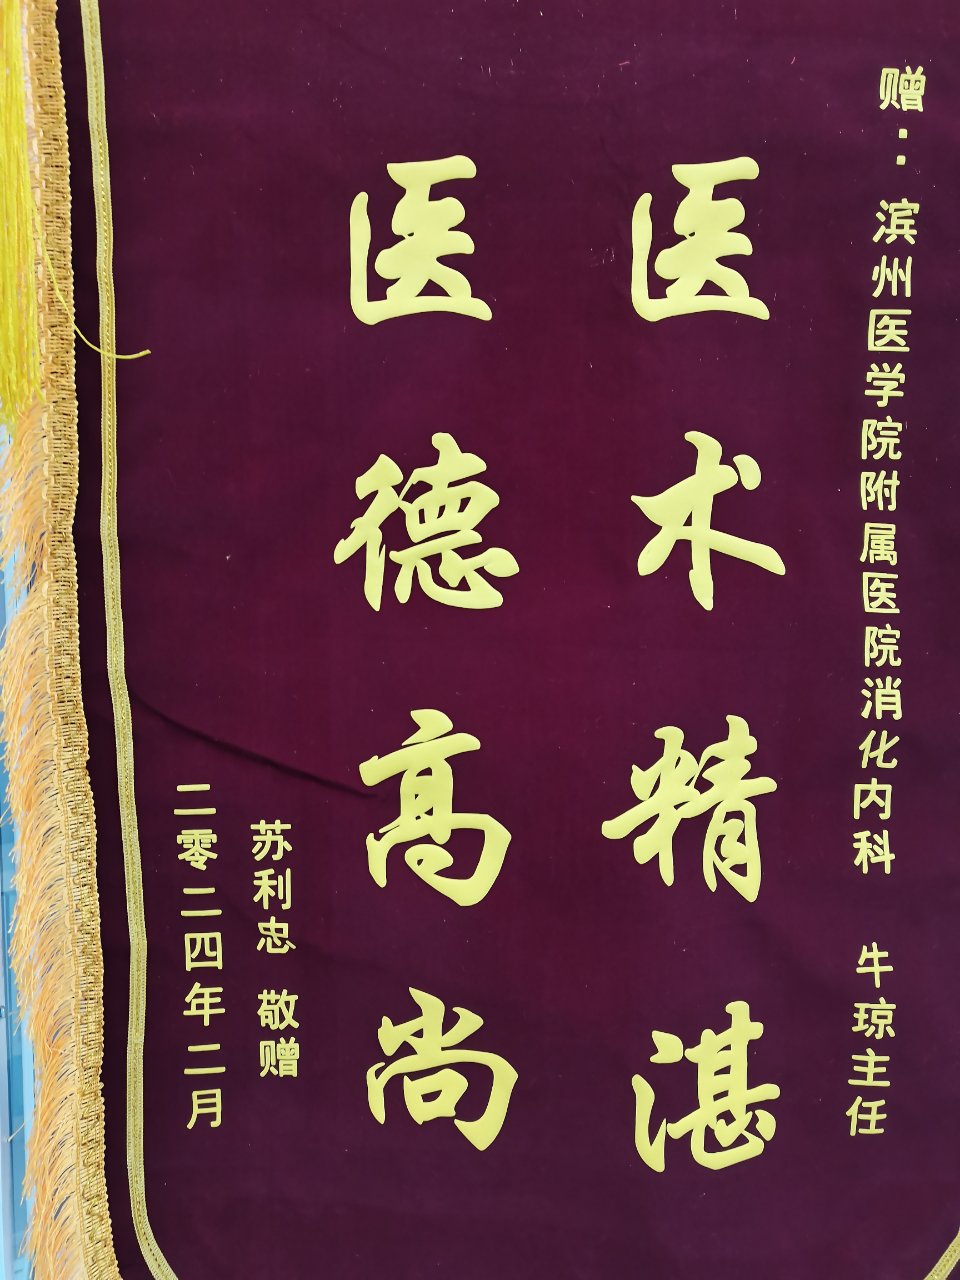 赠：滨州医学院附属医院消化内科 牛琼主任
医术精湛
医德高尚
苏利忠 敬赠
二零二四年二月